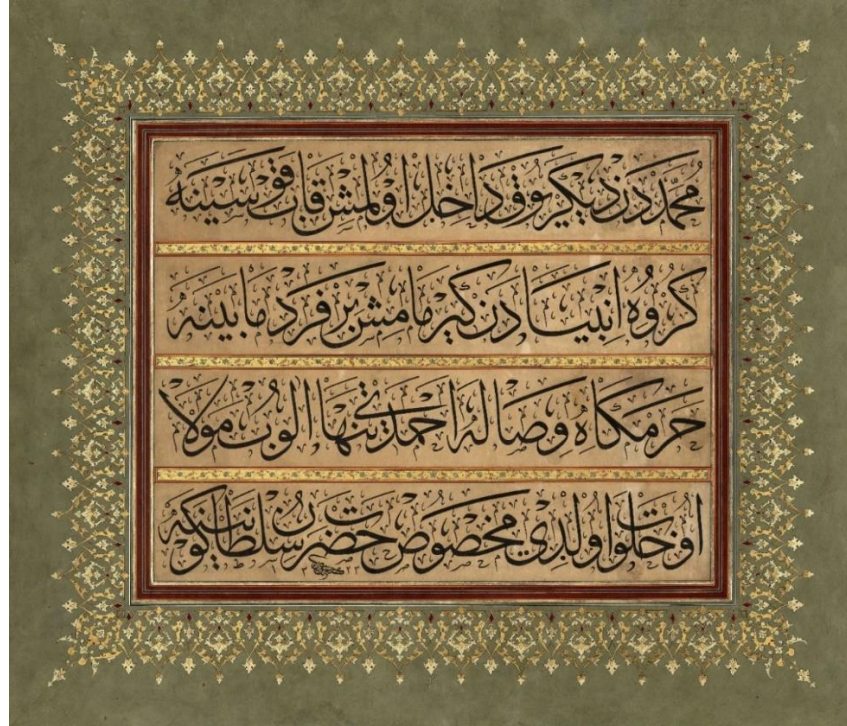 محمددن دیكر یوق داخل اولمش قاب قوسینه
كروه انبیادن كیرمامش بر فرد مابینه
حرمكاه وصاله احمدی تنها الوب مولا
او خلوت اولدی مخصوص حضرت سلطان كونینه